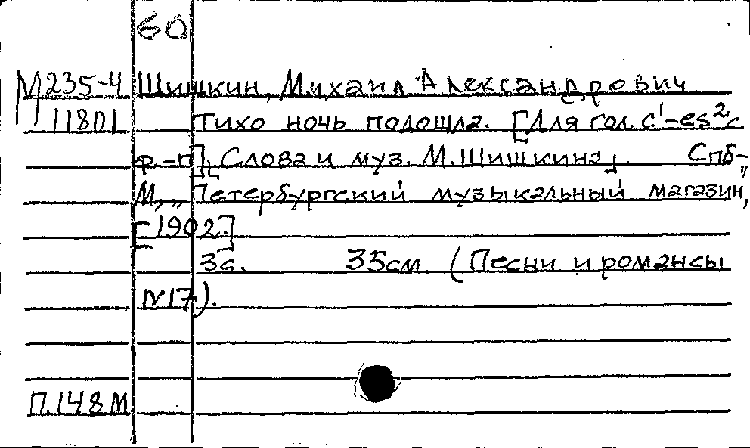 60
М 235-4 Шишкин, Михаил Александрович
11801 Тихо ночь подошла. [Для гол. c¹-es² с
ф.-п]. Слова и муз. М. Шишкина. Спб-
М, „Петербургский музыкальный магазин,"
[1902]
3с. 35см. (Песни и романсы
№17).
П.148М